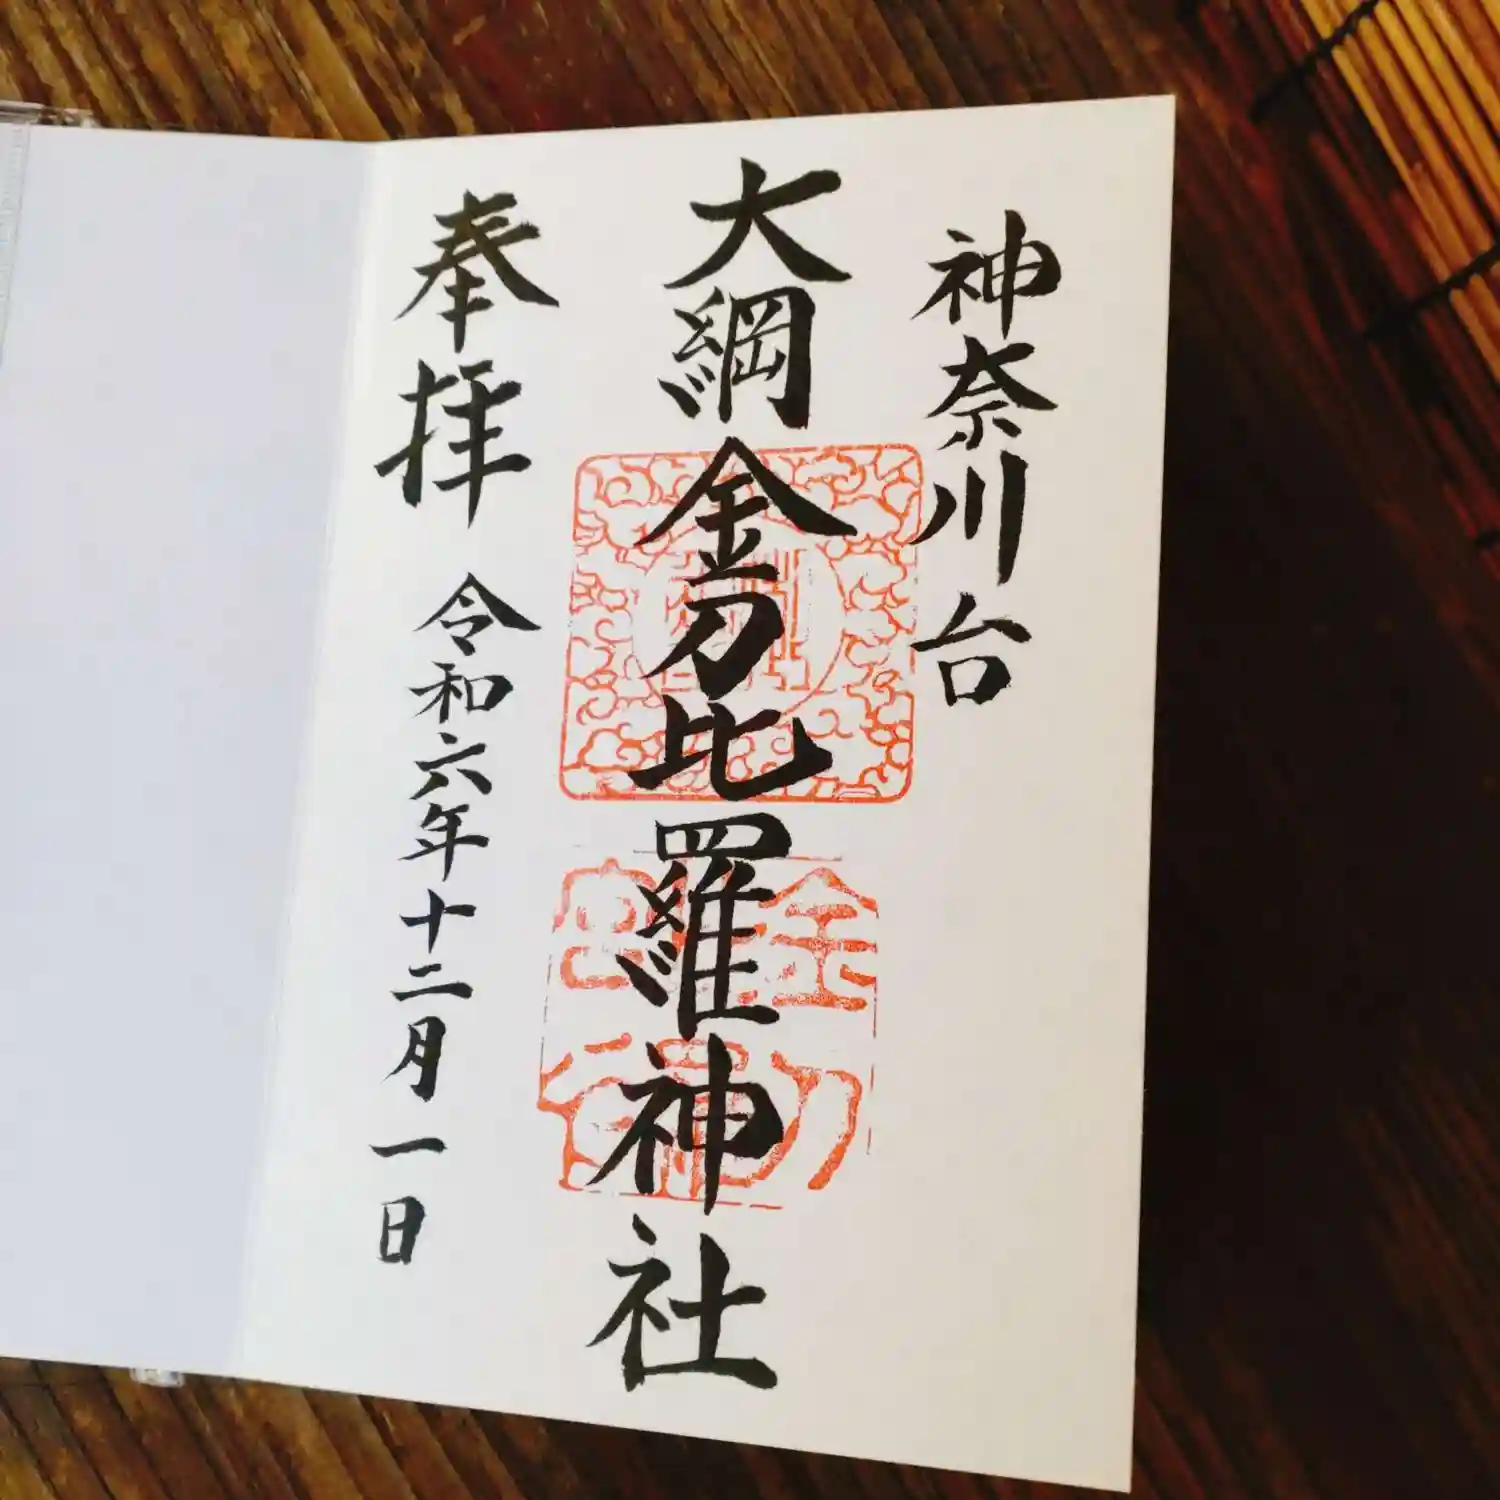 神奈川台
大綱金刀比羅神社
奉拝 令和六年十二月一日